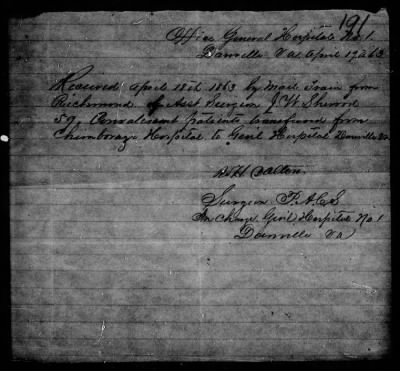 191
Office General Hospital No. 1.
Danville Va April 19th 63
Received April 18th 1863 by Mail Train from
Richmond of Asst Surgeon J.W.
59, Convalescent patients transferred from
Chimborazo Hospital to Gen'l Hospital Danville Va
Surgeon P.A.C.S
In charge Gen'l Hospital No 1
Danville Va